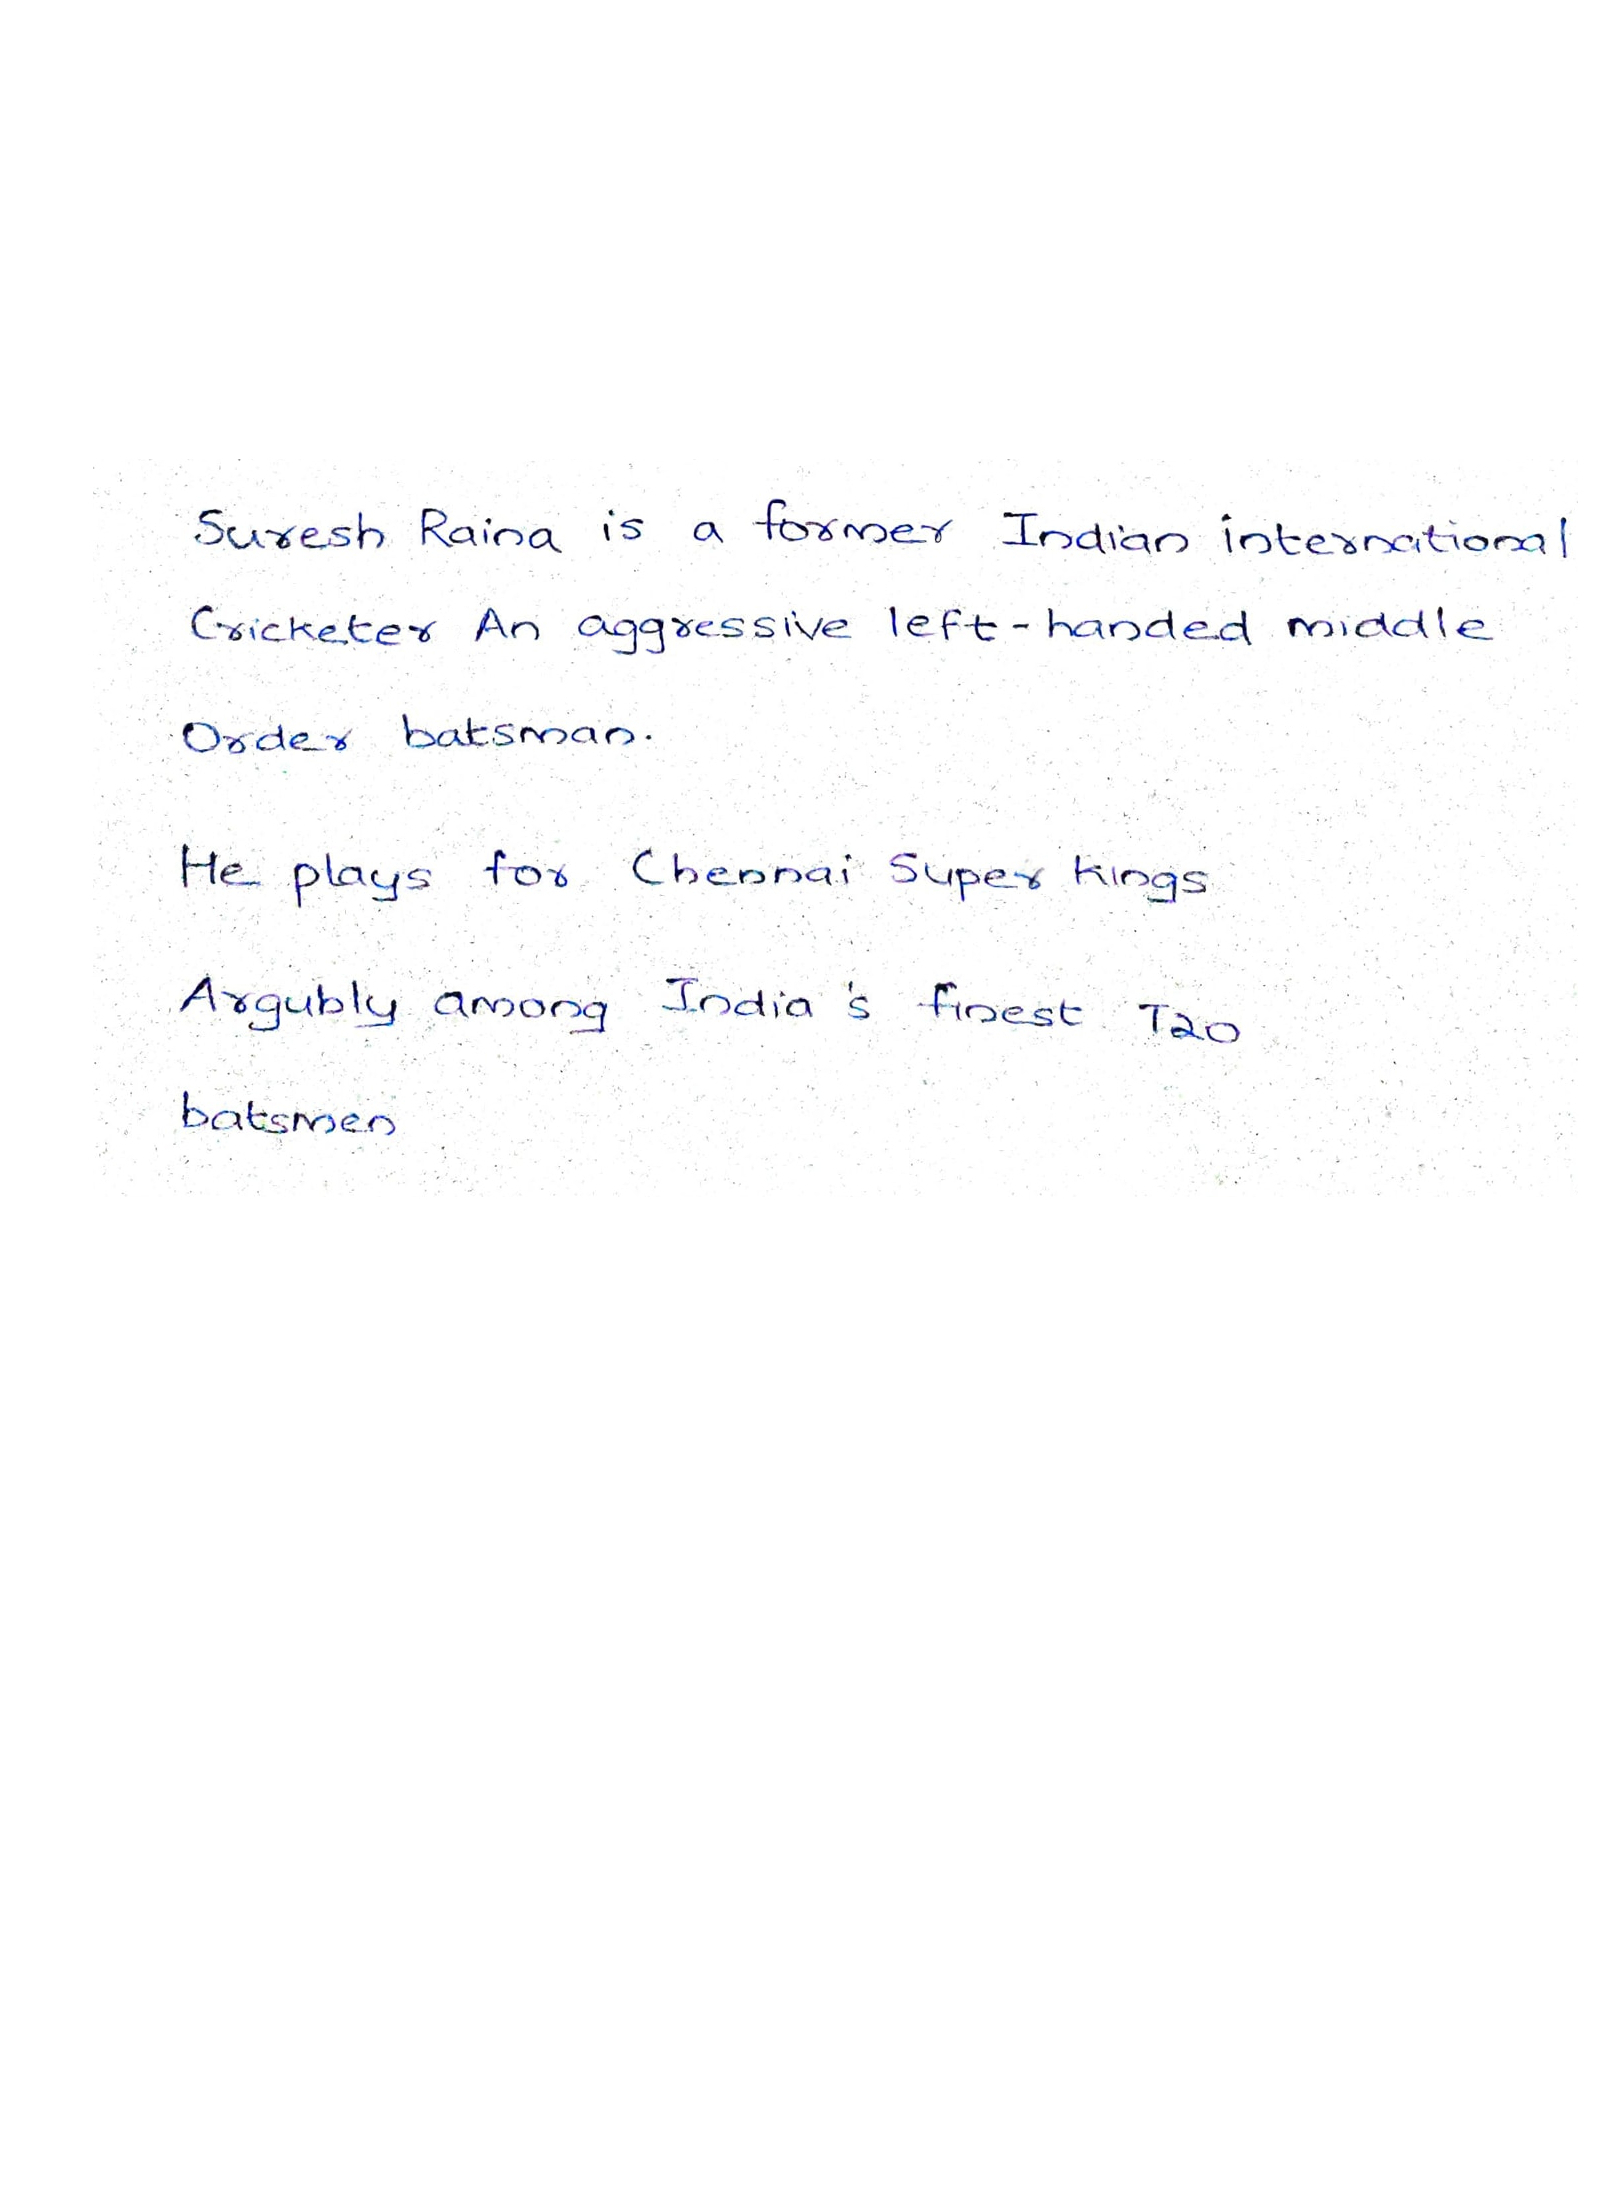 Suresh Raina is a former Indian international
Cricketer An aggressive left-handed middle
Order batsman.
He plays for Chennai Super kings
Argubly among India's finest T20
batsmen